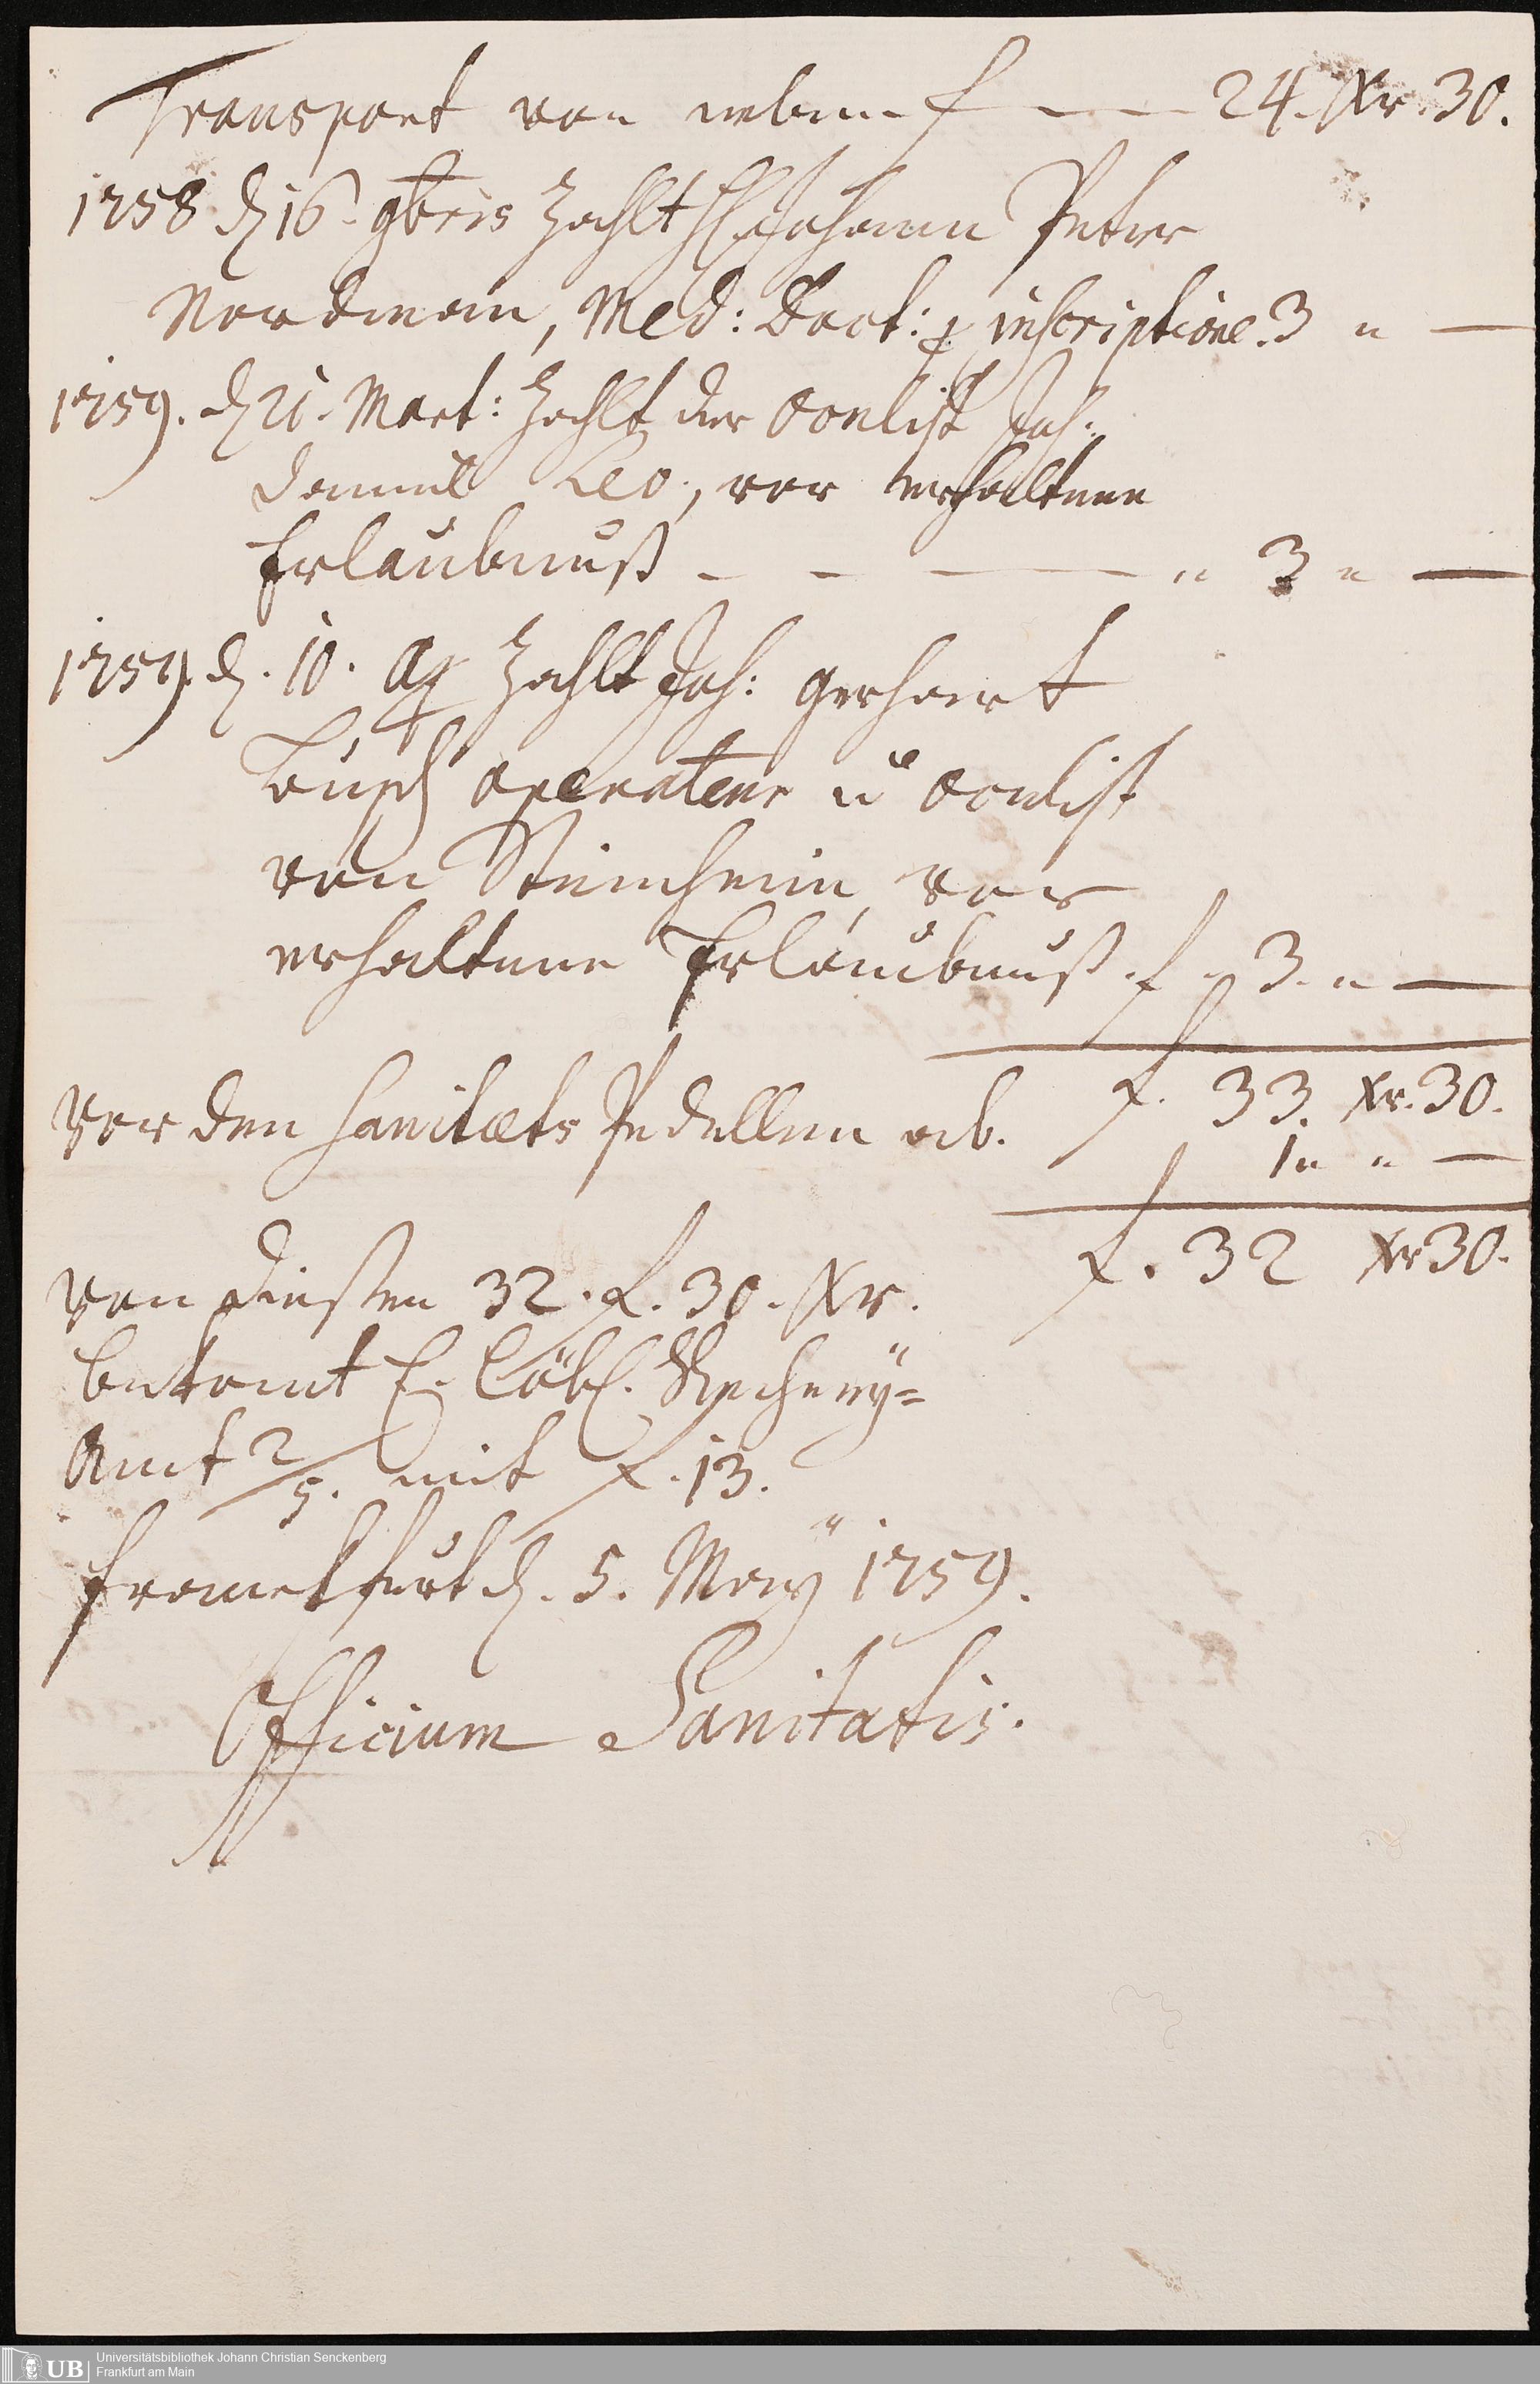 Transport von neben f — — 24. Xr. 30.
1758 d 16. 9bris zahlt H. Johann Peter
Nordmein, Med: Doct: p inscriptione. 3 " —
1759. d 21. Mart: zahlt der Oculist Joh:
Daniel Leo, vor erhaltene
Erlaubnuß - - — " 3 " —
1759 d. 10. Ap zahlt Joh: Gerhart
operateur u Oculist
von Steinheim, vor
erhaltene Erlaubnuß. f " 3. " —
f. 33. Xr. 30.
Vor den Sanitæts Pedellen ab.
1 " " —
f. 32 Xr 30.
Von dießen 32. f. 30. Xr.
bekomt E. Löbl. Recheney=
Amt 2/5. mit f. 13.
Franckfurt d. 5. May 1759.
Officium Sanitatis.
UB Universitätsbibliothek Johann Christian Senckenberg
Frankfurt am Main